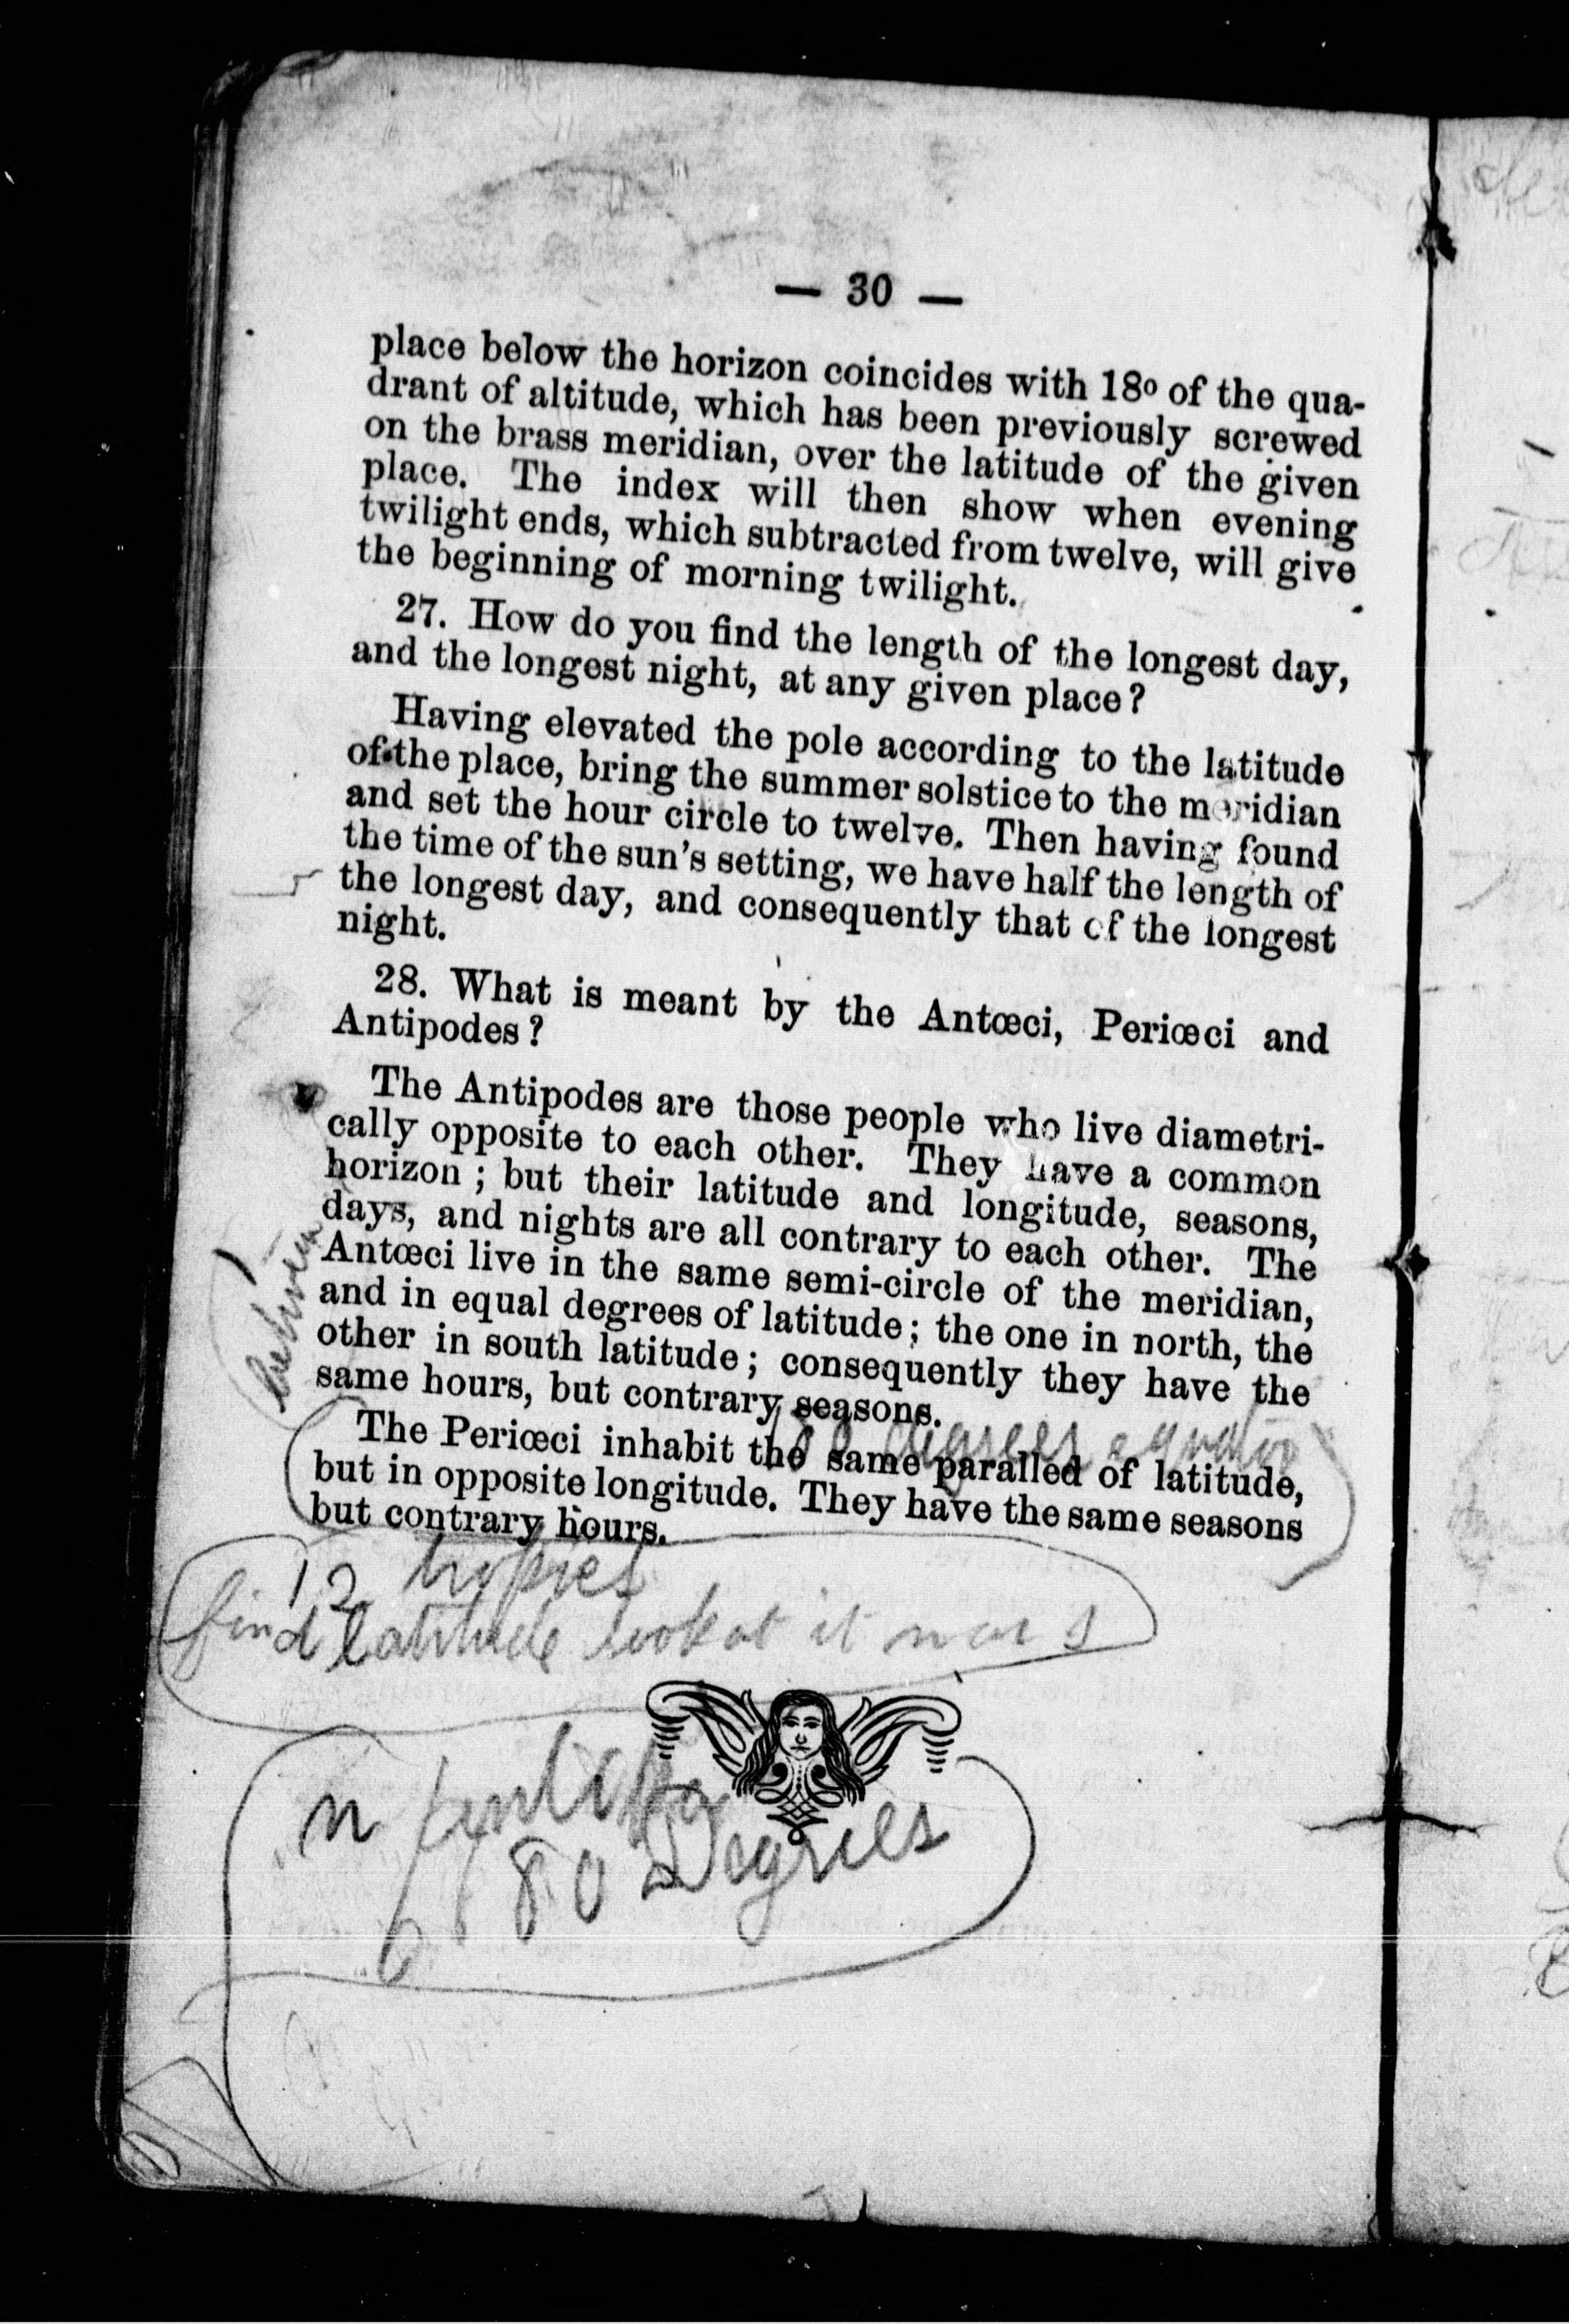 — 30 —
place below the horizon coincides with 18o of the qua-
drant of altitude, which has been previously screwed
on the brass meridian, over the latitude of the given
place. The index will then show when evening
twilight ends, which subtracted from twelve, will give
the beginning of morning twilight.
27. How do you find the length of the longest day,
and the longest night, at any given place?
Having elevated the pole according to the latitude
of the place, bring the summer solstice to the meridian
and set the hour circle to twelve. Then having found
the time of the sun's setting, we have half the length of
the longest day, and consequently that of the longest
night.
28. What is meant by the Antœci, Periœci and
Antipodes?
The Antipodes are those people who live diametri-
cally opposite to each other. They have a common
horizon; but their latitude and longitude, seasons,
days, and nights are all contrary to each other. The
Antœci live in the same semi-circle of the meridian,
and in equal degrees of latitude; the one in north, the
other in south latitude; consequently they have the
same hours, but contrary seasons.
between
degrees equator
The Periœci inhabit the same paralled of latitude,
but in opposite longitude. They have the same seasons
but contrary hours.
12 tropics
find latitude look at it
n
180 Degrees